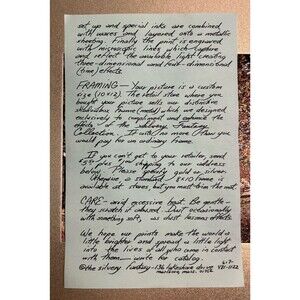 set up and special inks are combined
with waxes and layered onto a metallic
sheeting. Finally the print is engraved
with microscopic lines which capture
and reflect the available light creating
three-dimensional and four-dimensional
(time) effects.
FRAMING - Your picture is a custom
size (10x12). The retail store where you
bought your picture sells our distinctive
frame (matte) which we designed
exclusively to compliment and enhance the
effects of the Silvery Fantasy
Collection. It costs no more than you
would pay for an ordinary frame.
If you can't get to your retailer, send
plus shipping to our address
below. Please specify gold or silver.
Otherwise a standard 8x10 frame is
available at stores, but you must trim the mat.
CARE - avoid excessive heat. Be gentle -
they scratch if abused. Dust occasionally
with something soft, as dust lessens effects.
We hope our prints make the world a
little brighter and spread a little light
into the lives of all who come in contact
with them - write for catalog.
@the silvery fantasy - 136 lakeshore drive